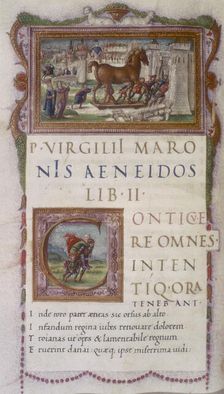 P · VIRGILII MARO
NIS AENEIDOS
LIB · II ·
CONTICVE
RE OMNES
INTEN
TIQ · ORA
TENEBANT ·
Inde toro pater æneas sic orsus ab alto
Infandum regina iubes renouare dolorem
Troianas ut opes & lamentabile regnum
Eruerint danai · quæq; ipse miserrima uidi ·